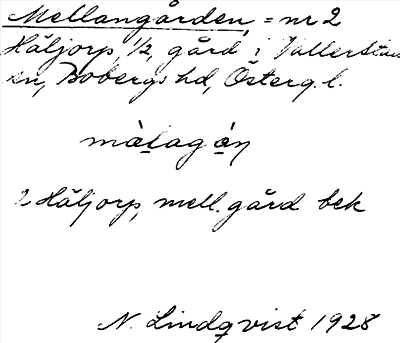 Mellangården, = nr 2
Häljorp 1/2, gård i Vallerstads
sn, Bobergs hd, Österg. l.
mèlagọ́ŋ
2 Häljorp, mell. gård bek
N. Lindqvist 1928